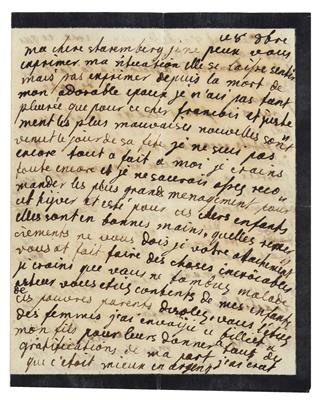 ce 8 8bre
ma chere staremberg je ne peux vous
exprimer ma situation elle se laisse sentir
mais pas exprimer depuis la mort de
mon adorable epoux je n'ais pas tant
pleurée que pour ce cher francois et juste
ment les plus mauvaises nouvelles sont
venut le jour de sa fete je ne suis pas
encore tout a fait a moi je crains
toute encore et je ne saurais assez reco
mander les plus grand menagement pour
cet hyver et este pour ces chers enfants
elles sont en bonnes mains, quelles remer
ciements ne vous dois je votre attachement
vous at fait faire des choses incroiables
je crains que vous ne tombiez malade
vous etes contents de mes enfants
de ces pauvres parents vous
des femmes j'ai envoyée ce billet a
mon fils pour leurs donner a tous de
gratifications de ma part j'ai crut
que c'etoit mieux en argent